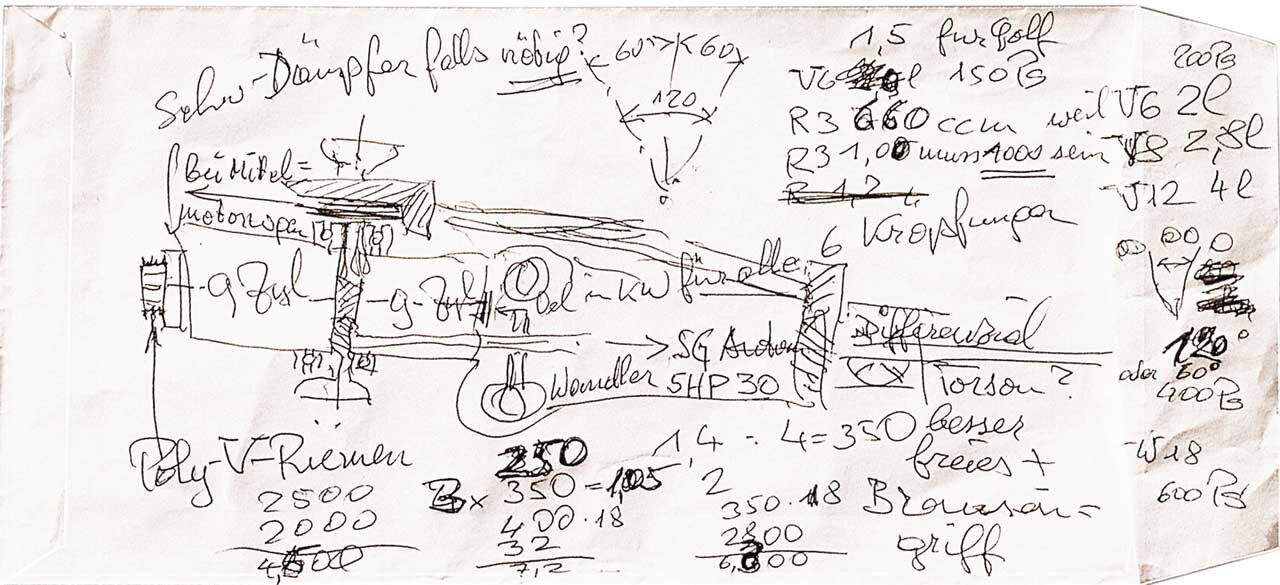 Schw-Dämpfer falls nötig?
60° 60
120
1,5 für Golf
V6 l 150 PS
200 PS
R3 660 ccm weil V6 2l
R3 1,00 muss 1000 sein V8 2,8l
V12 4l
6 Kröpfungen
Bei Mittel=
motor
9 Zyl
9 Zyl
in KW für alle
SG
Wandler 5HP30
Differenzial
Torson?
120°
oder 60°
400 PS
Poly-V-Riemen
250
1,4 : 4 = 350
besser
freies +
Bremsen=
griff
W18
600 PS
2500
2000
4,500
3x 350 = 1,05
400 · 18
32
7,2
2
350 · 18
2800
6,300